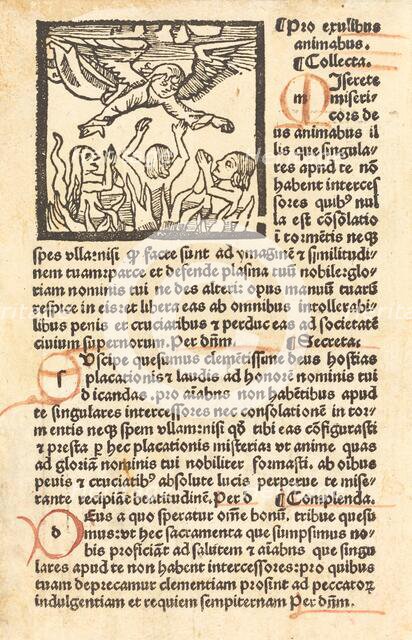 ¶Pro exulibus
animabus.
¶Collecta.
Iserere
m miseri-
cors de
us animabus il
lis que singula
res apud te nō
habent interces
sores quibꝰ nul
la est cōsolatio
i tormētis neqꝫ
spes vllarnisi ꝙ facte sunt ad ymaginē ⁊ similitudi
nem tuamrparce et defende plasma tuū nobilerglo
riam nominis tui ne des alteri: opus manuū tuarū
respice in eis:et libera eas ab omnibus intollerabi
libus penis et cruciatibus ⁊ perduc eas ad societatē
ciuium supernorum. Per dn̄m. ¶Secreta.
s Uscipe quesumus clemētissime deus hostias
placationis ⁊ laudis ad honorē nominis tui
dicandas, pro aīabus non habētibus apud
te singulares intercessores nec consolationē in tor
mentis neqꝫ spem vllamrnisi qđ tibi eas cōfigurasti
⁊ presta ꝑ hec placationis misteria: vt anime quas
ad gloriam nominis tui nobiliter formasti. ab oībus
penis ⁊ cruciatibꝰ absolute lucis perpetue te mise-
rante recipiāt beatitudinē. Per d ¶Complenda.
d Eus a quo speratur omē bonū, tribue quesu
mus: vt hec sacramenta que sumpsimus no-
bis proficiāt ad salutem ⁊ aīabus que singu
lares apud te non habent intercessores: pro quibus
tuam deprecamur clementiam prosint ad peccatoꝝ
indulgentiam et requiem sempiternam Per dn̄m.